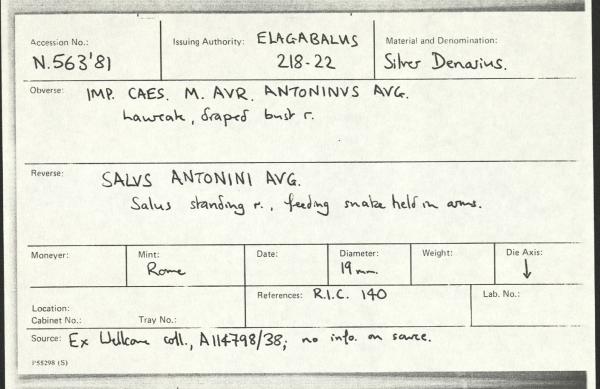 Accession No.: Issuing Authority: ELAGABALUS Material and Denomination:
N.563'81 218-22 Silver Denarius.
Obverse: IMP. CAES. M. AVR. ANTONINVS AVG.
Laureate, draped bust r.
Reverse: SALVS ANTONINI AVG.
Salus standing r., feeding snake held in arms.
Moneyer: Mint: Date: Diameter: Weight: Die Axis:
Rome 19 mm. ↓
References: R.I.C. 140 Lab. No.:
Location:
Cabinet No.: Tray No.:
Source: Ex Wellcome coll., A114798/38; no info. on source.
P55298 (S)